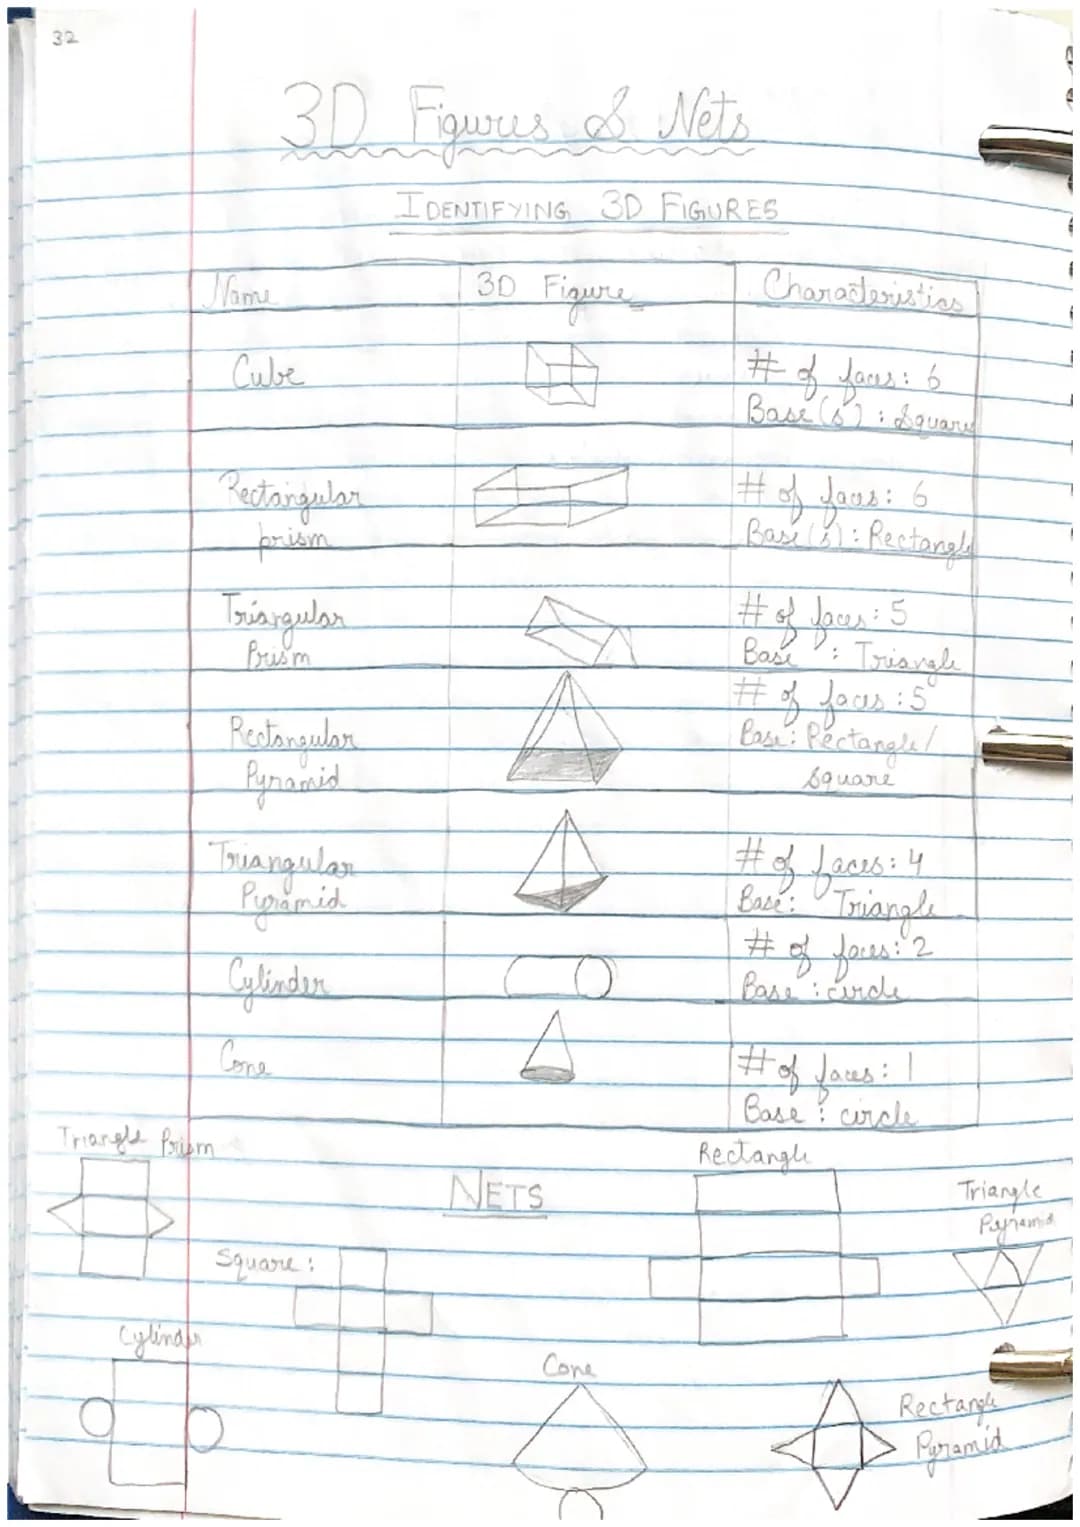 32
3D Figures & Nets
IDENTIFYING 3D FIGURES
Name 3D Figure Characteristics
Cube
# of faces: 6
Base(s) : Square
Rectangular
prism
# of faces: 6
Base(s) : Rectangle
Triangular
Prism
# of faces: 5
Base : Triangle
Rectangular
Pyramid
# of faces : 5
Base: Rectangle/
square
Triangular
Pyramid
# of faces: 4
Base: Triangle
Cylinder
# of faces: 2
Base : circle
Cone
# of faces: 1
Base : circle
Triangle Prism
NETS
Rectangle
Triangle
Pyramid
Square :
Cylinder
Cone
Rectangle
Pyramid